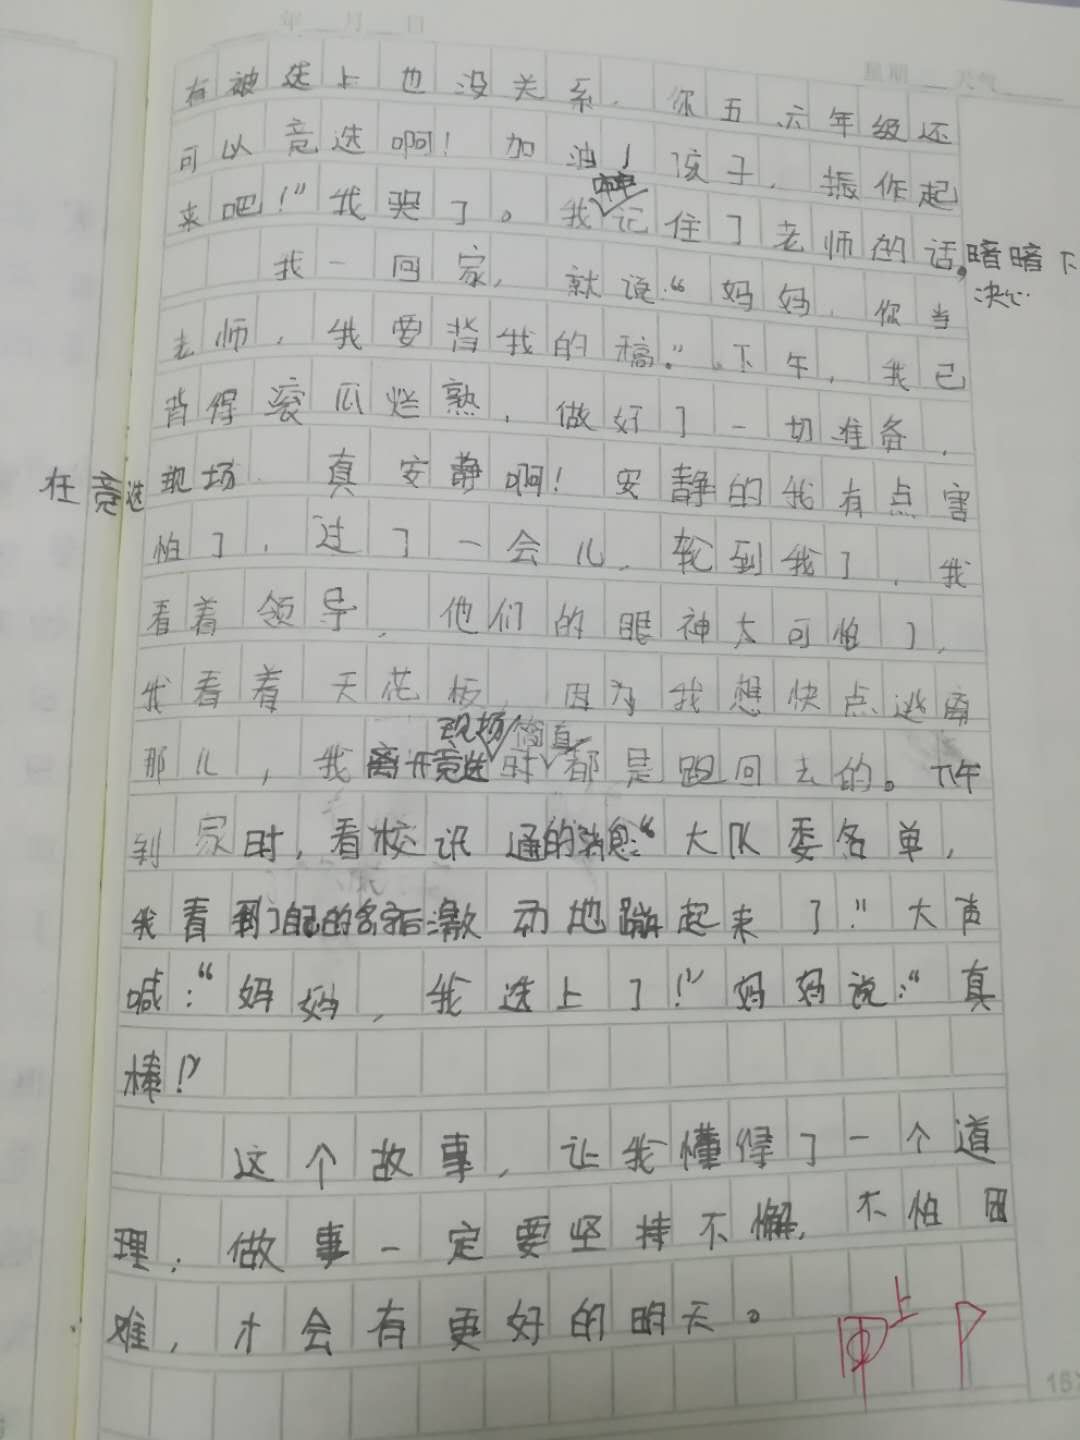 年 月 日
星期 天气
有被选上也没关系，你五、六年级还
可以竞选啊！加油！孩子，振作起
来吧！”我哭了。我记住了老师的话，暗暗下
决心
我一回家，就说：“妈妈，你当
老师，我要背我的稿。”下午，我已
背得滚瓜烂熟，做好了一切准备，
在竞选现场，真安静啊！安静的我有点害
怕了，过了一会儿，轮到我了，我
看着领导，他们的眼神太可怕了，
我看着天花板，因为我想快点逃离
那儿，我离开竞选现场时简直都是跑回去的。下午
到家时，看校讯通的消息：“大队委名单，
我看到了自己的名字后激动地蹦起来了”大声
喊：“妈妈，我选上了！”妈妈说：“真
棒！”
这个故事，让我懂得了一个道
理：做事一定要坚持不懈，不怕困
难，才会有更好的明天。
上